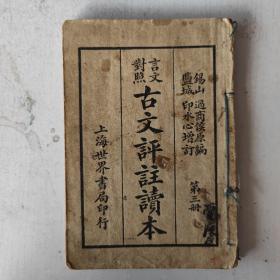 錫山過商侯原編
鹽城印水心增訂
言文
對照
古文評註讀本
第三冊
上海世界書局印行